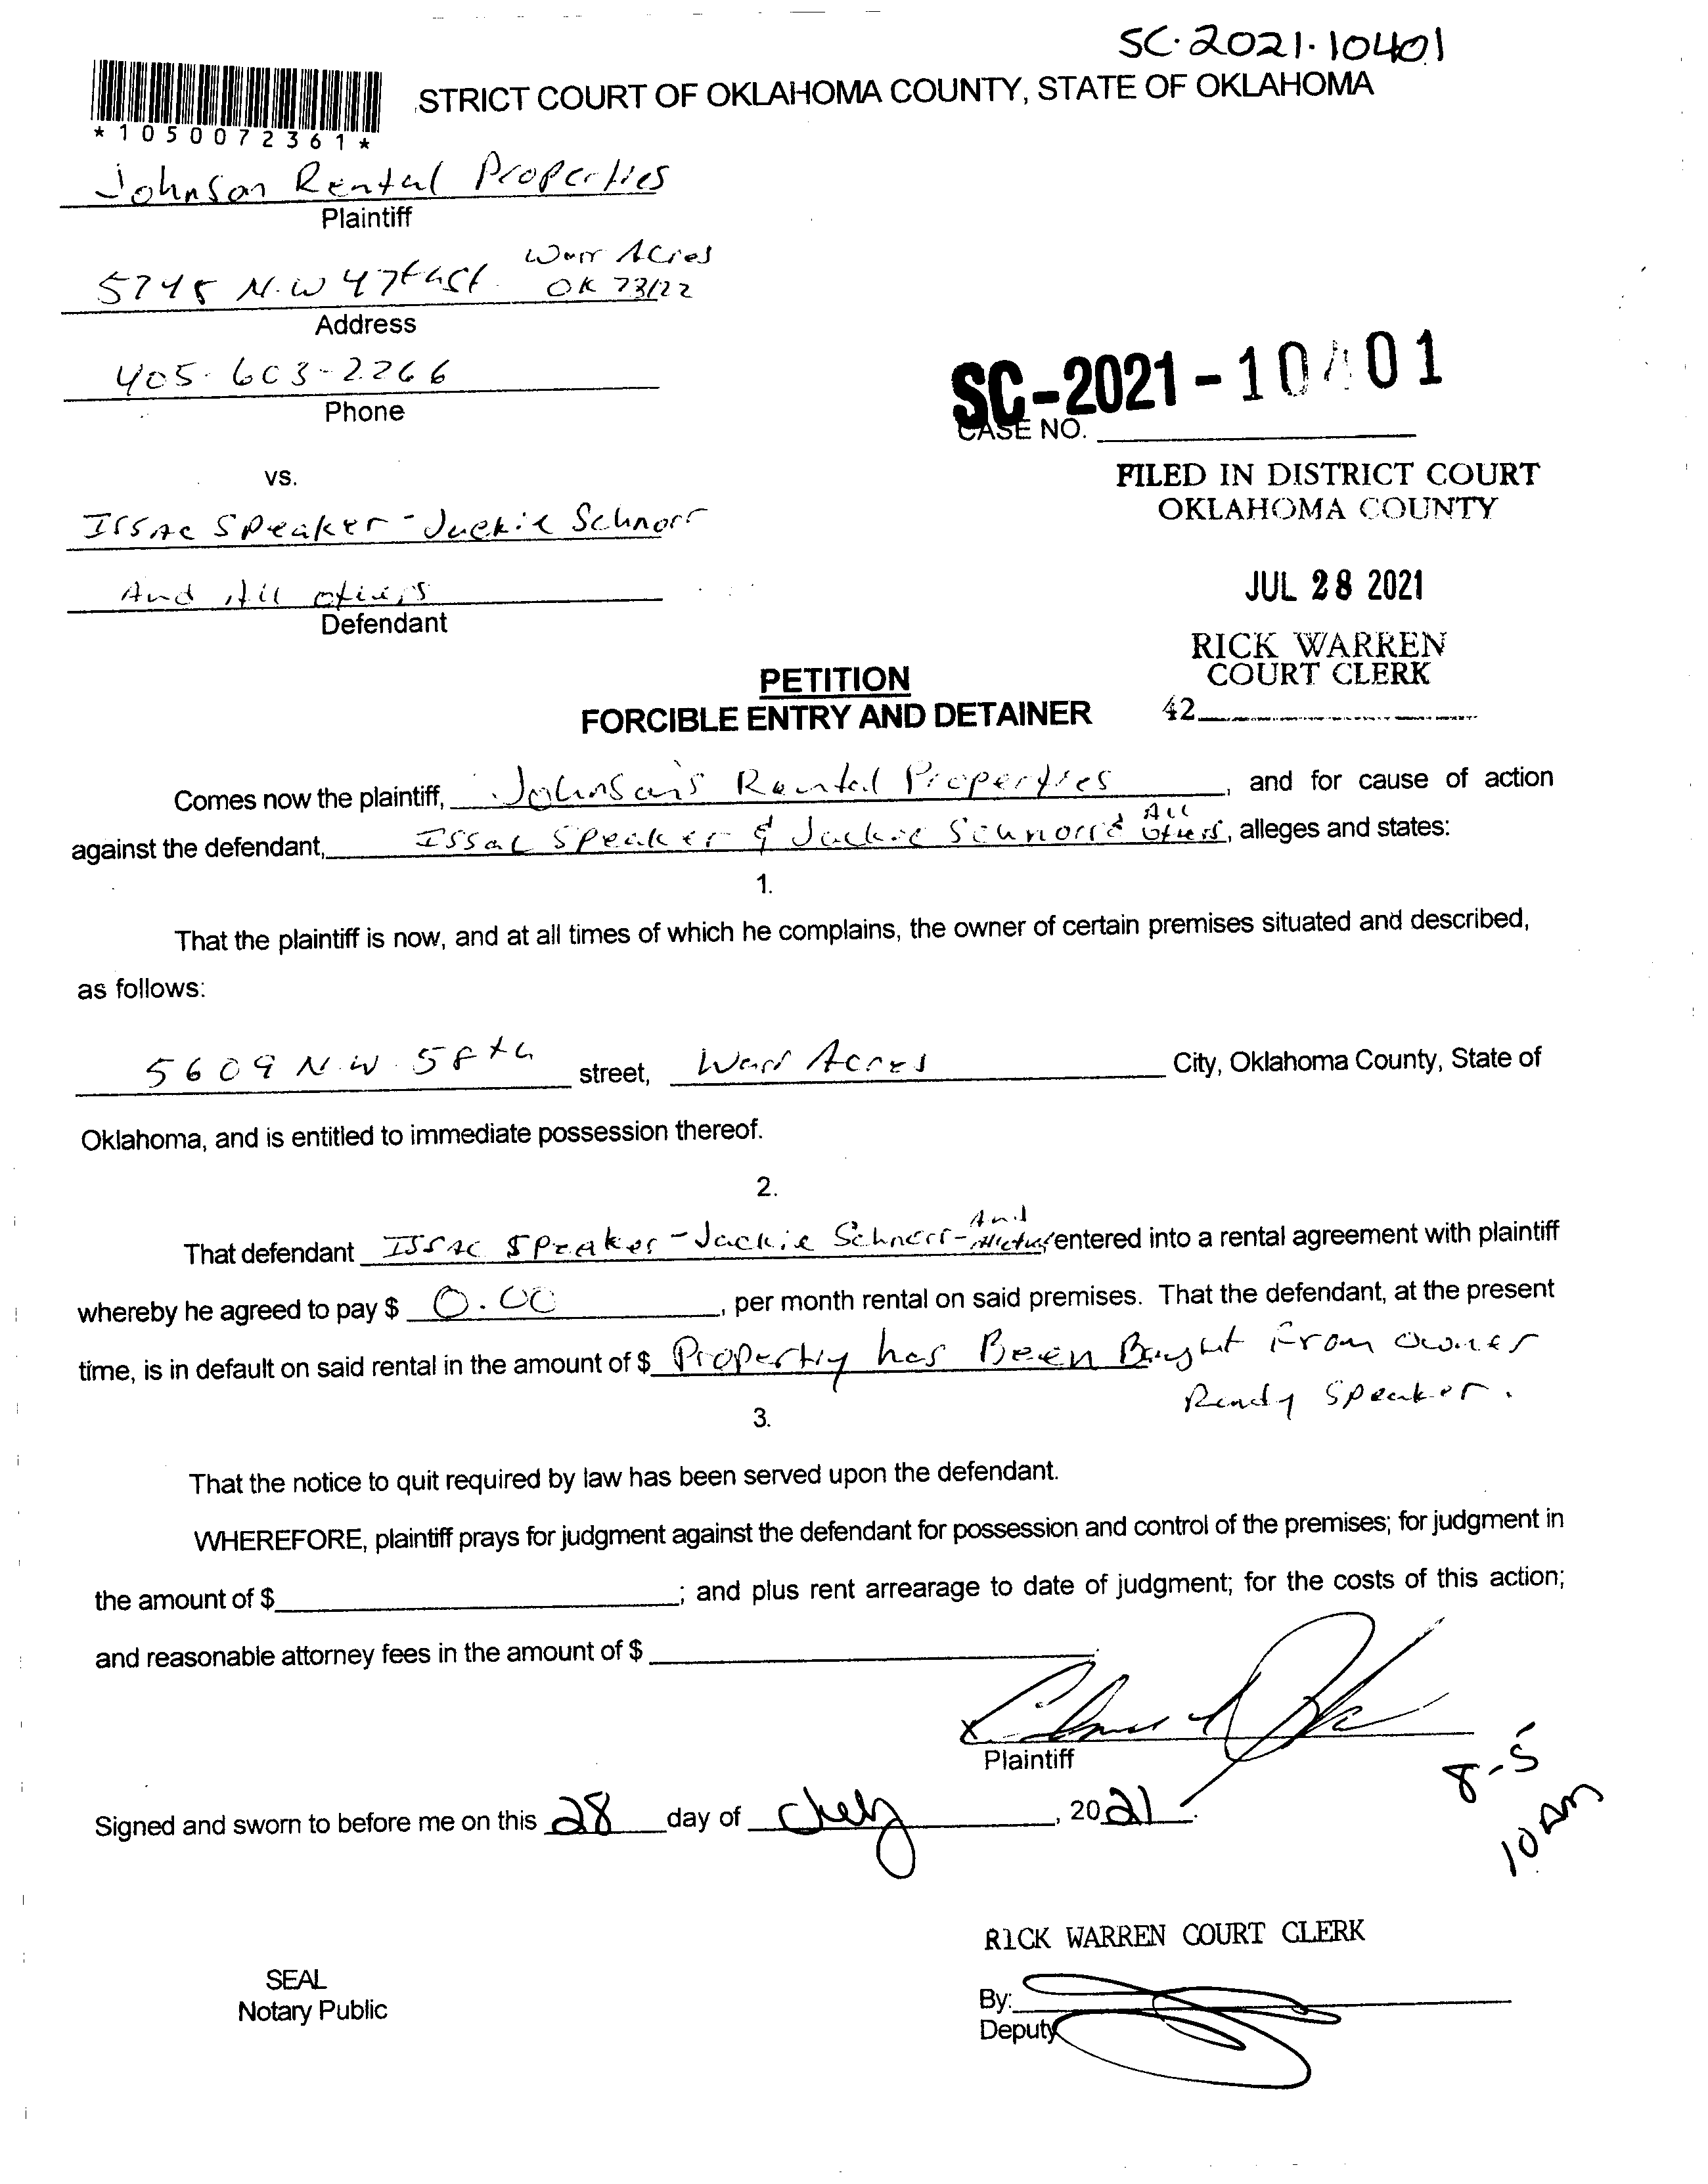 SC.2021.10401
STRICT COURT OF OKLAHOMA COUNTY, STATE OF OKLAHOMA
*1050072361*
Johnson Rental Properties
Plaintiff
Warr Acres
N.W 47th St. OK 73122
Address
405-603-2266
Phone
SC-2021-10401
CASE NO.
vs.
FILED IN DISTRICT COURT
OKLAHOMA COUNTY
Issac Speaker - Jackie Schnorr
And All others
Defendant
JUL 28 2021
RICK WARREN
COURT CLERK
42
PETITION
FORCIBLE ENTRY AND DETAINER
Comes now the plaintiff, Johnson's Rental Properties, and for cause of action
against the defendant, Issac Speaker & Jackie Schnorr & All others, alleges and states:
1.
That the plaintiff is now, and at all times of which he complains, the owner of certain premises situated and described,
as follows:
5609 N.W. 58th street, Warr Acres City, Oklahoma County, State of
Oklahoma, and is entitled to immediate possession thereof.
2.
That defendant Issac Speaker - Jackie Schnorr - And entered into a rental agreement with plaintiff
whereby he agreed to pay $ 0.00, per month rental on said premises. That the defendant, at the present
time, is in default on said rental in the amount of $ Property has Been Bought From owner
Randy Speaker.
3.
That the notice to quit required by law has been served upon the defendant.
WHEREFORE, plaintiff prays for judgment against the defendant for possession and control of the premises; for judgment in
the amount of $ ; and plus rent arrearage to date of judgment; for the costs of this action;
and reasonable attorney fees in the amount of $ .
X
Plaintiff
8-5
10 AM
Signed and sworn to before me on this 28 day of July, 2021.
R1CK WARREN COURT CLERK
SEAL
Notary Public
By:
Deputy